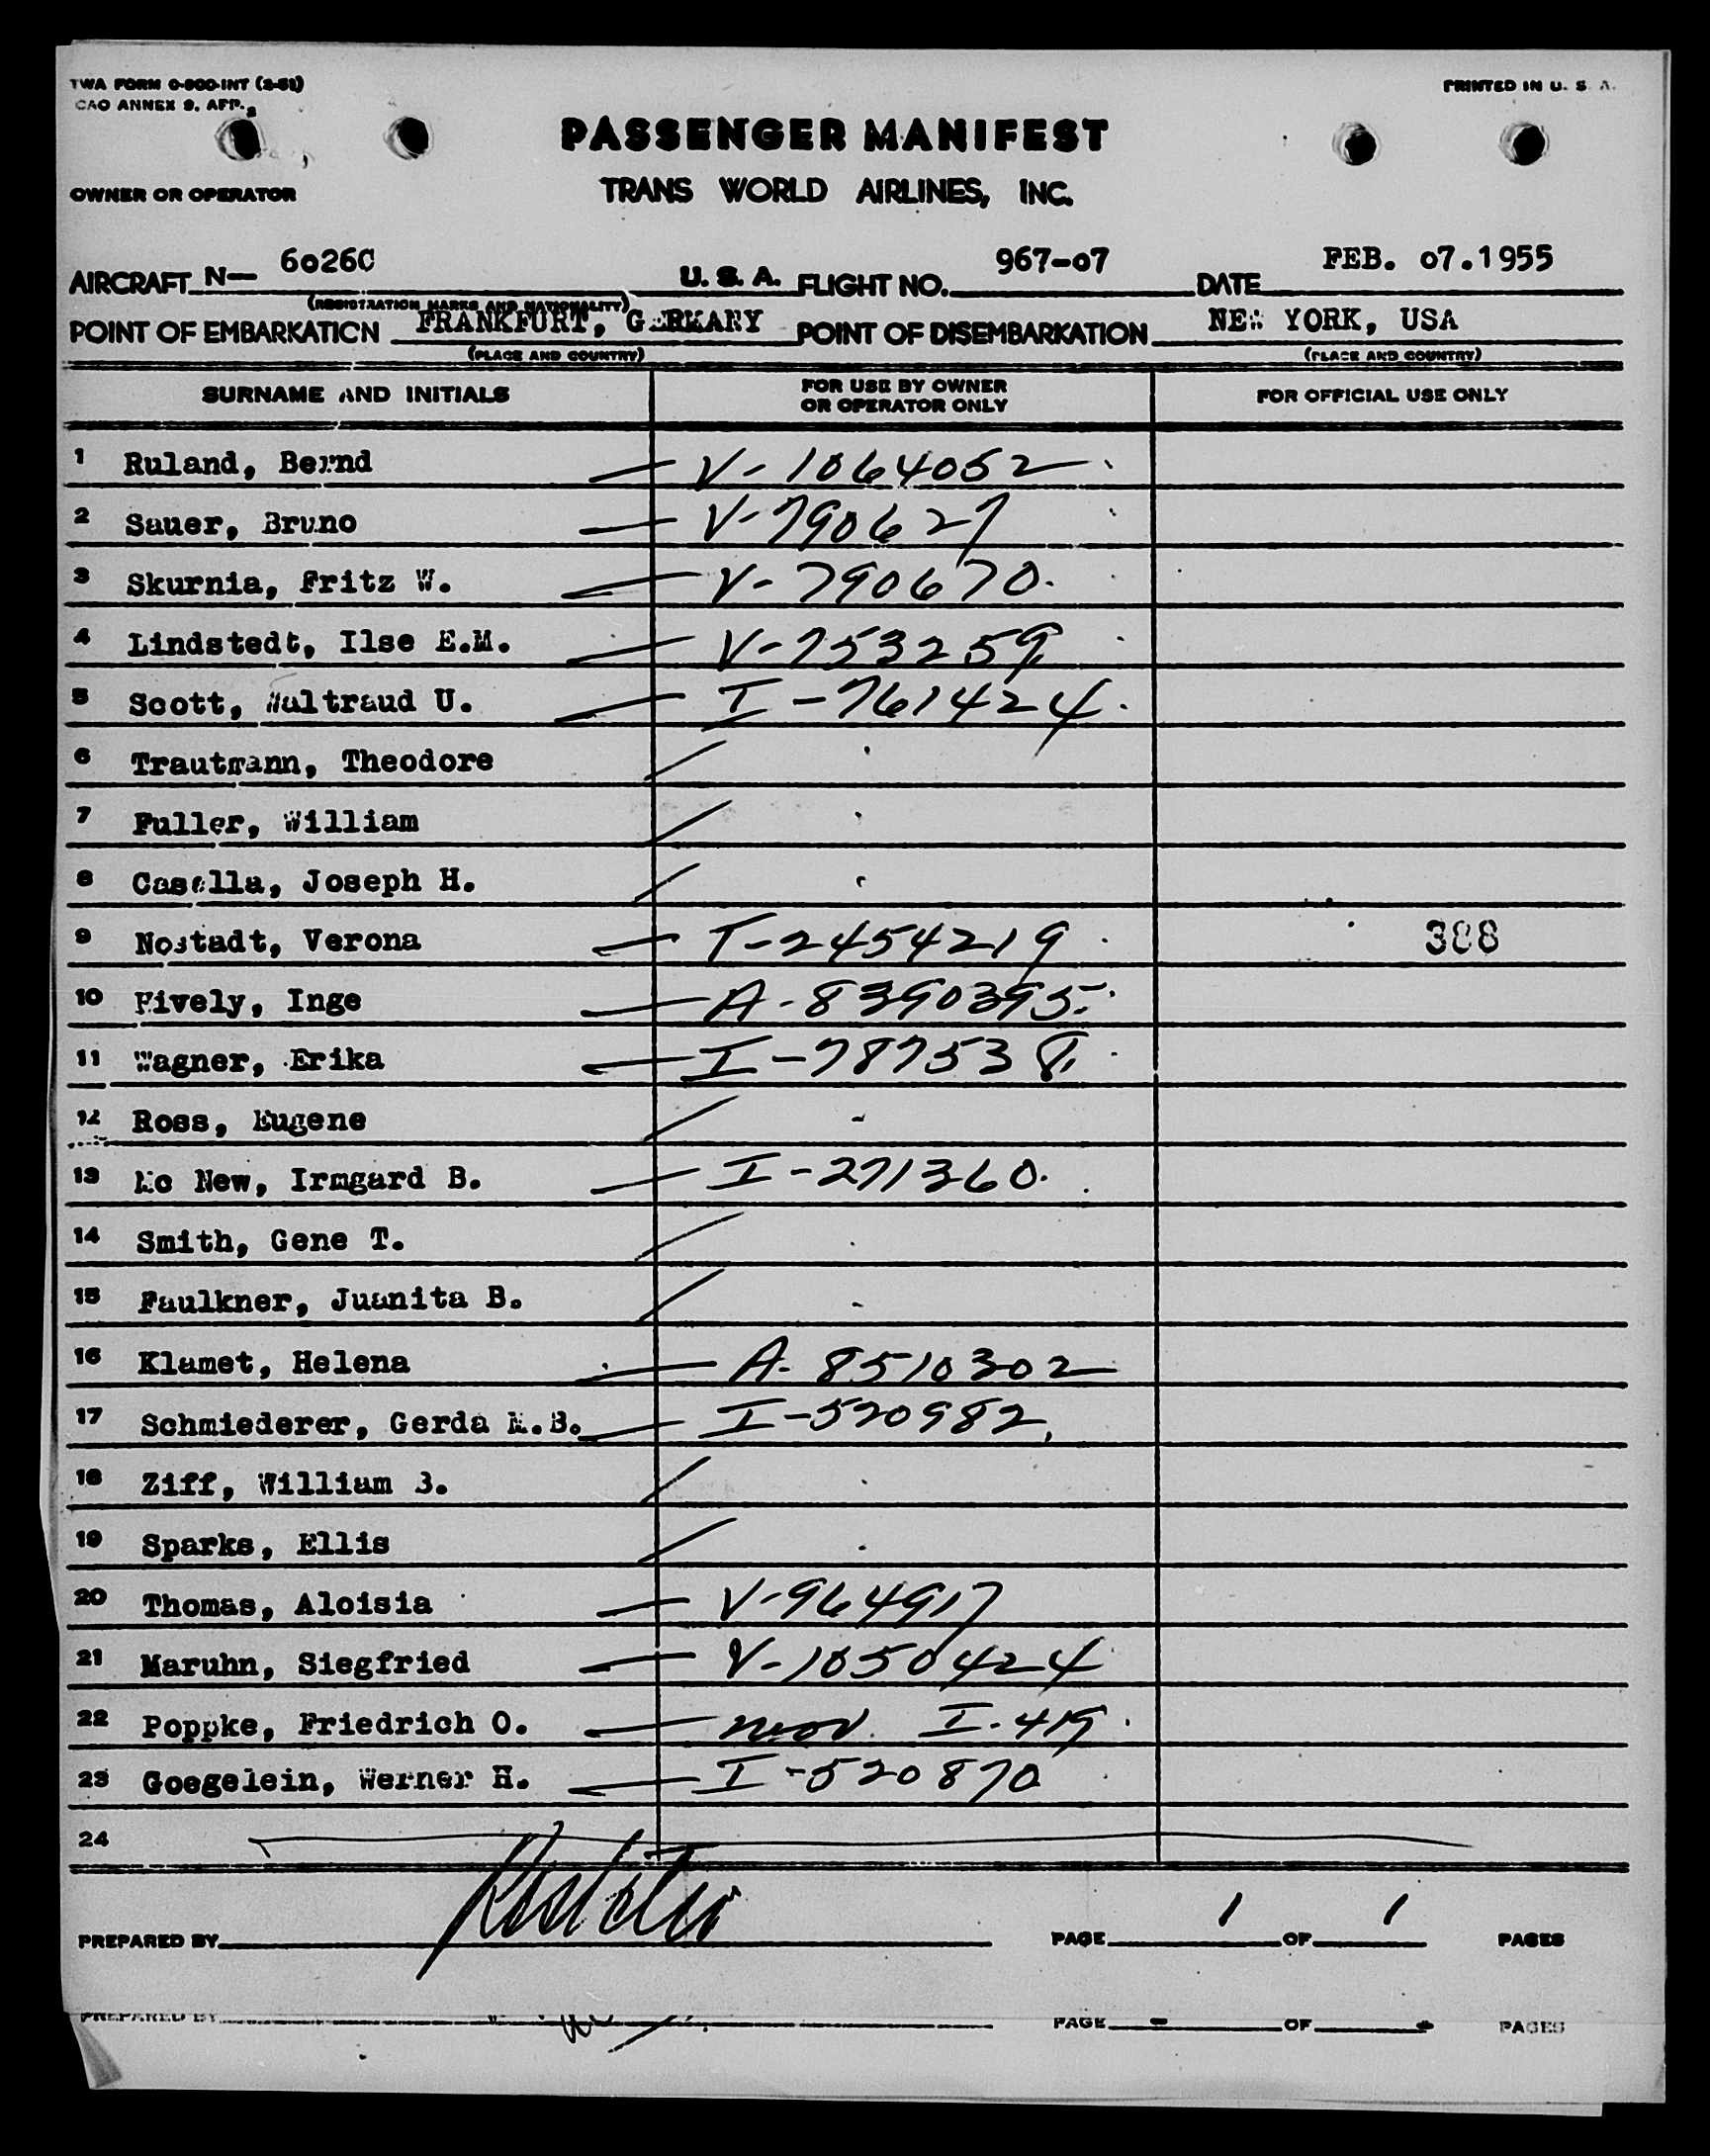 TWA FORM O-800-INT (2-51)
PRINTED IN U. S. A.
CAO ANNEX 9, APP. 2
PASSENGER MANIFEST
OWNER OR OPERATOR
TRANS WORLD AIRLINES, INC.
AIRCRAFT N— 6026C U. S. A. FLIGHT NO. 967-07 DATE FEB. 07.1955
(REGISTRATION MARKS AND NATIONALITY)
POINT OF EMBARKATION FRANKFURT, GERMANY POINT OF DISEMBARKATION NEW YORK, USA
(PLACE AND COUNTRY) (PLACE AND COUNTRY)
SURNAME AND INITIALS FOR USE BY OWNER OR OPERATOR ONLY FOR OFFICIAL USE ONLY
1 Ruland, Bernd — V-1064052
2 Sauer, Bruno — V-790627
3 Skurnia, Fritz W. — V-790670
4 Lindstedt, Ilse E.M. — V-753259
5 Scott, Waltraud U. — I-761424
6 Trautmann, Theodore
7 Fuller, William
8 Casella, Joseph H.
9 Nostadt, Verona — T-2454219 388
10 Fively, Inge — A-8390395
11 Wagner, Erika — I-787538
12 Ross, Eugene
13 Mc New, Irmgard B. — I-271360
14 Smith, Gene T.
15 Faulkner, Juanita B.
16 Klamet, Helena — A-8510302
17 Schmiederer, Gerda M.B. — I-520982
18 Ziff, William B.
19 Sparks, Ellis
20 Thomas, Aloisia — V-964917
21 Maruhn, Siegfried — V-1050424
22 Poppke, Friedrich O. — I-419
23 Goegelein, Werner H. — I-520870
24
PREPARED BY PAGE 1 OF 1 PAGES
PREPARED BY PAGE OF PAGES